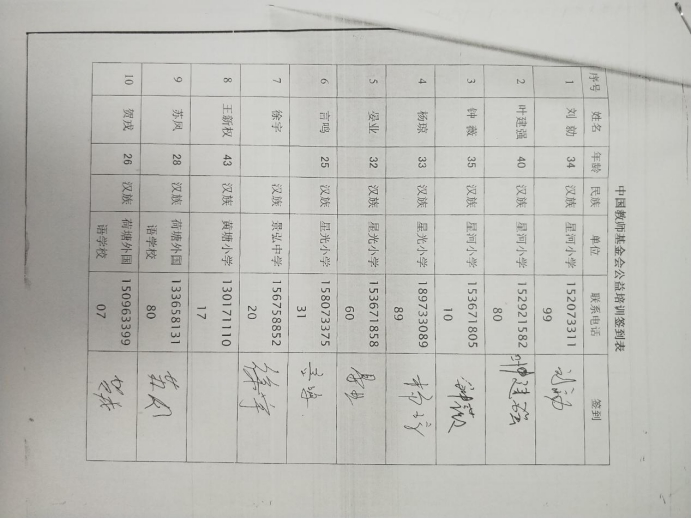 中国教师基金会公益培训签到表
序号 姓名 年龄 民族 单位 联系电话 签到
1 刘勍 34 汉族 星河小学 152073311
99
2 叶建强 40 汉族 星河小学 152921582 叶建强
80
3 钟薇 35 汉族 星河小学 153671805 钟薇
10
4 杨琼 33 汉族 星光小学 189733089
89
5 晏业 32 汉族 星光小学 153671858
60
6 言鸣 25 汉族 星光小学 158073375
31
7 徐宇 汉族 景弘中学 156758852 徐宇
20
8 王新权 43 汉族 黄塘小学 130171110
17
9 苏凤 28 汉族 荷塘外国 133658131 苏凤
语学校 80
10 贺戎 26 汉族 荷塘外国 150963399
语学校 07